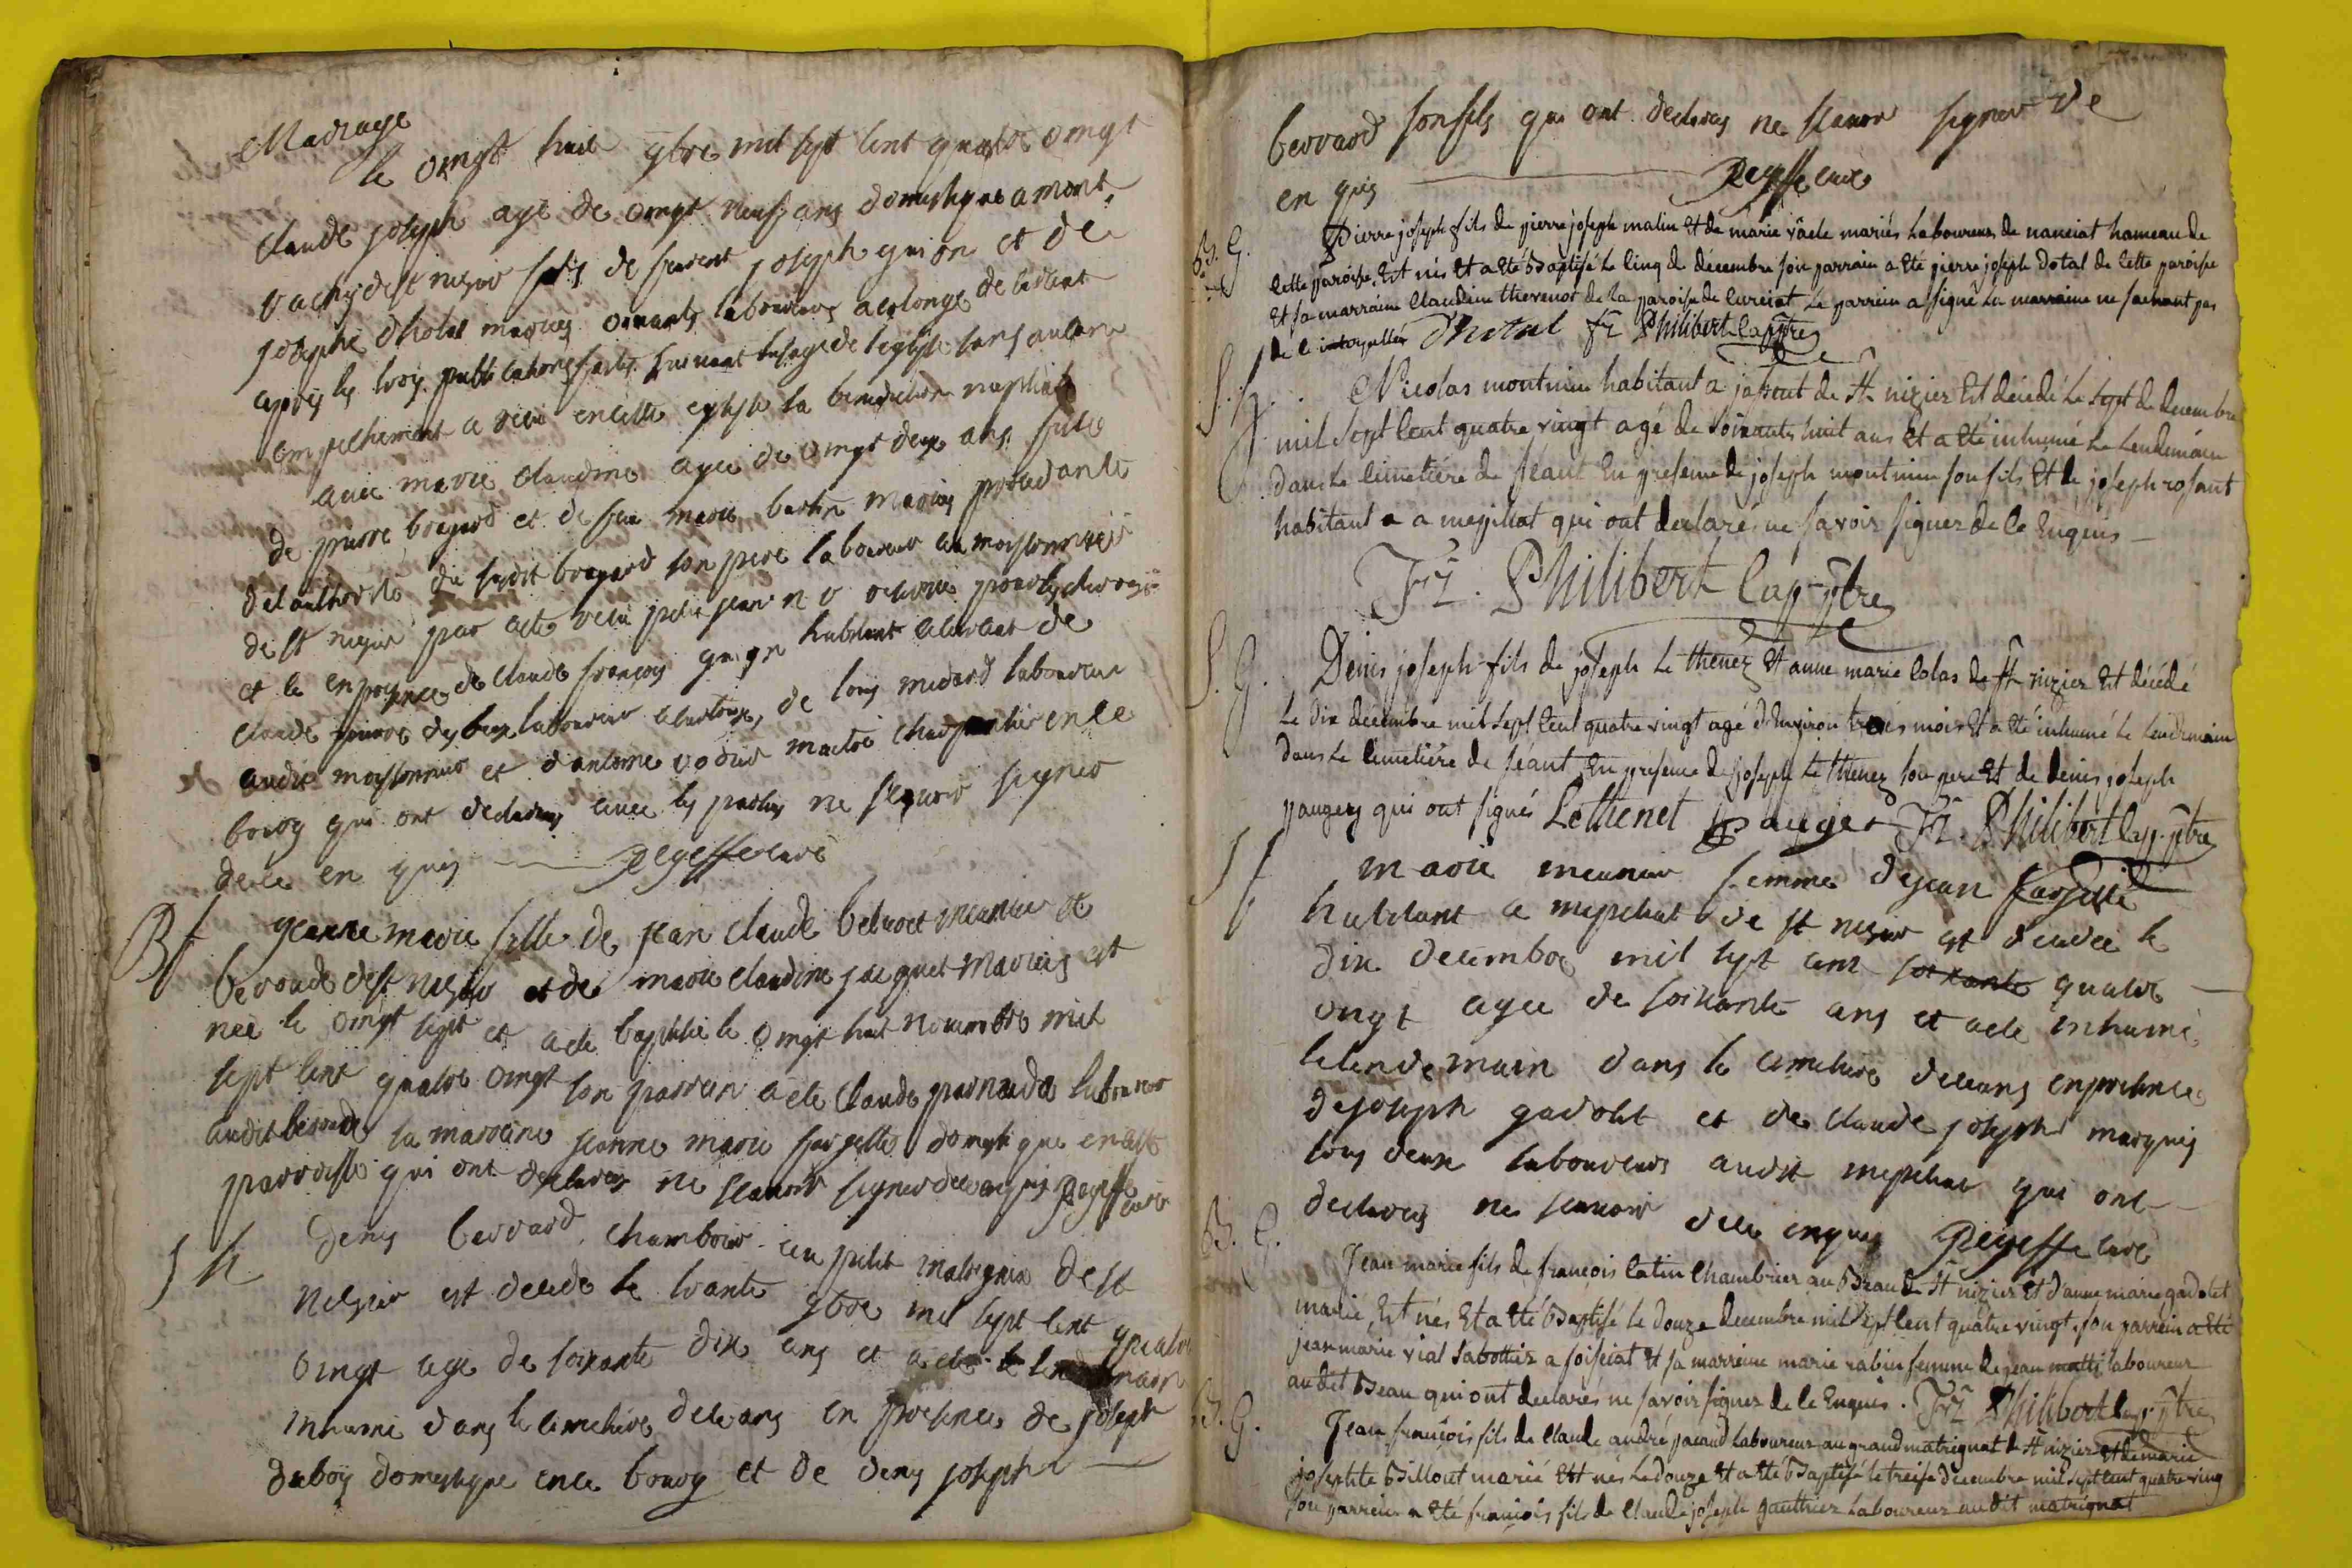 Mariage
le vingt huit 9bre mil sept cent quatre vingt
claude joseph agé de vingt neufs ans domestique a mont,
de st nesier fils de joseph guion et de
josephe dhotal mariés vivants laboureurs a
après les trois publications faites suivant lusage de leglise sans aucun
empechement a recu en cette eglise la benediction nuptiale
avec marie claudine agée de vingt deux ans fille
de pierre bragard et de feue marie mariés procedante
de lauthorité du susdit bragard son pere laboureur au
de st nesier par acte recu
et ce en presence de claude françois guign habitant de
claude pierre laboureur de louis medard laboureur
andré moissonnier et d'antoine vodier maitre charpentier en ce
bourg qui ont declarés avec les parties ne sçavoir signer
de ce en quis Regeffe curé
B f jeanne marie fille de jean claude meunier
de st nesier et de marie claudine jacquet mariés est
née le vingt sept et a ete baptisée le vingt huit novembre mil
sept cent quatre vingt son parrein a ete claude laboureur
audit la marreine jeanne marie fargette domestique en cette
parroisse qui ont declarés ne scavoir signer de ce enquis Regeffe curé
S h denis berrard chambrier au petit matrignia de st
nesier est decedé le trante 9bre mil sept cent quatre
vingt agé de soixante dix ans et a ete le lendemain
inhumé dans le cimetière de ceans en presence de joseph
duboïs domestique en ce bourg et de denis joseph
berrard son fils qui ont declarés ne scavoir signer de ce
en quis Regeffe curé
B. G. Pierre joseph fils de pierre joseph malin et de marie vâcle mariés Laboureurs de nanciat hameau de
Cette paroisse. Est nés Et a eté Baptisé Le Cinq de décembre son parrain a eté pierre joseph dotal de Cette paroisse
Et sa marraine Claudine thevenot de la paroisse de Curciat Le parrein a signé La marraine ne sachant pas
de ce interpellée D'hotal fr. Philibert Cap. ptre
S. h. Nicolas montnieu habitant a japeut de St nizier Est décedé Le Sept de decembre
mil Sept Cent quatre vingt agé de Soixante huit ans Et a eté inhumé Le Lendemain
dans Le Cimetière de Séant En presence de joseph montnieu son fils Et de joseph rosant
habitant a a mepillat qui ont declarés ne savoir signer de Ce Enquis
Fr. Philibert Cap. ptre
S. G. Denis joseph fils de joseph Le thenez Et anne marie Colas de St nizier Est décédé
Le dix decembre mil Sept Cent quatre vingt agé d'Environ trois mois Et a eté inhumé Le Lendemain
dans Le Cimetière de Séant En presence de joseph Le thenez son pere Et de denis joseph
paugers qui ont signés Lethenet pauget Fr. Philibert Cap. ptre
S f marie meunier femme de jean fargette
habitant a mepillat de st nesier est decedée le
dix decembre mil sept cent soixante quatre
vingt agée de soixante ans et a ete inhumé
le lendemain dans le cimetière de ceans en presence
de joseph gadolet et de claude joseph marquis
tous deux laboureurs audit mepillat qui ont
declarés ne scavoir de ce enquis Regeffe curé
B. G. Jean marie fils de françois Catin Chambrier au Beau de St nizier Et d'anne marie gadolet
marié, Est nés Et a eté Baptisé Le douze decembre mil Sept Cent quatre vingt, son parrein a eté
jean marie vial Sabottier a foissiat Et sa marreine marie rabin femme de jean mottit laboureur
audit Beau qui ont declarés ne savoir signer de Ce Enquis. Fr. Philibert Cap. ptre
B. G. Jean françois fils de Claude andré pacaud Laboureur au grand matrignat de St nizier Et de marie
josephte Billout marié Est nés Le douze Et a eté Baptisé Le treise decembre mil Sept Cent quatre ving
son parrein a eté françois fils de Claude joseph gauthier Laboureur au dit matrignat